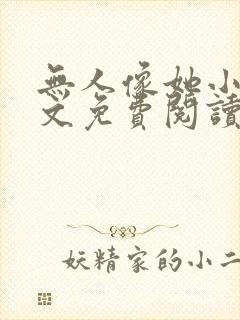 無人像她小
文免費閱讀
妖精家的小二